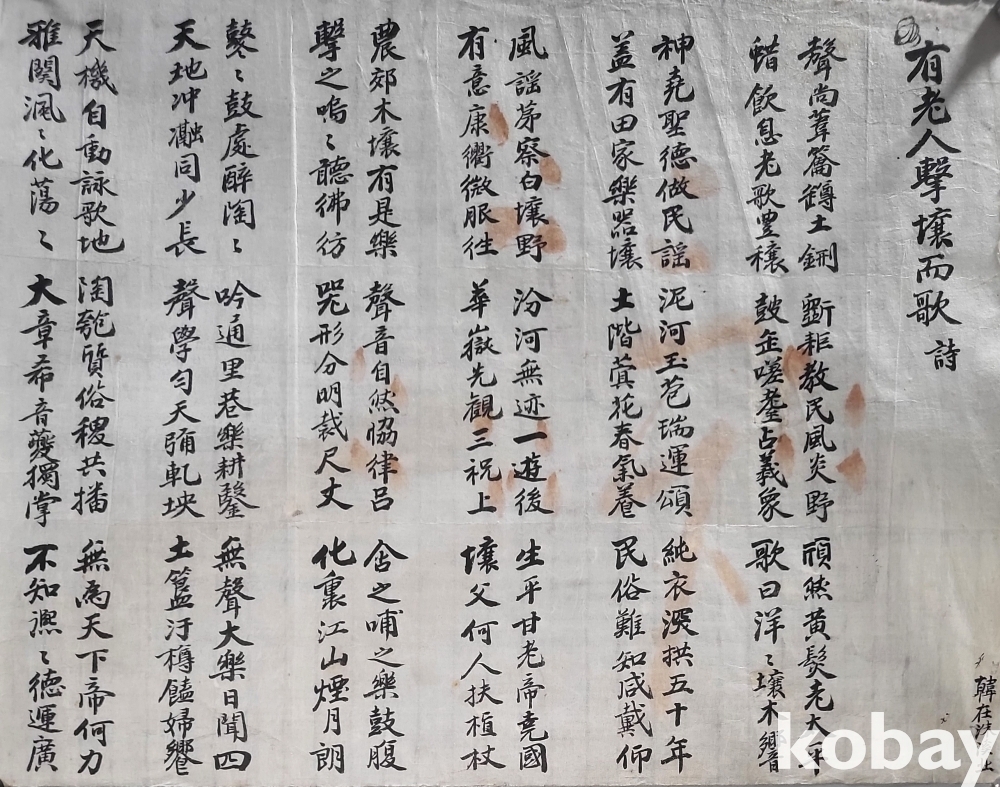 有老人擊壤而歌 詩
聲尚葦籥鐏土鉶 斲耒教民風炎野 頎然黃髮老大平
蜡飲息老歌豊穰 鼓缶嗟耋占羲象 歌曰洋〻壤木響
神堯聖德做民謠 泥河玉苞瑞運頌 純衣深拱五十年
盖有田家樂器壤 土階蓂花春氣養 民俗難知咸戴仰
風謠茅察白壤野 汾河無迹一遊後 生平甘老帝堯國
有意康衢微服徃 華嶽先觀三祝上 壤父何人扶植杖
農郊木壤有是樂 聲音自然恊律呂 含之哺之樂鼓腹
擊之嗚〻聽彿彷 咒形分明裁尺丈 化裏江山煙月朗
鼕〻鼓處醉陶〻 吟通里巷樂耕鑿 無聲大樂日聞四
天地冲瀜同少長 聲學勻天彌軋坱 土簋汙樽饁婦饗
天機自動詠歌地 陶匏質俗稷共播 無為天下帝何力
雅闋渢〻化蕩〻 大章希音夔獨掌 不知漂〻德運廣
韓在
kobay